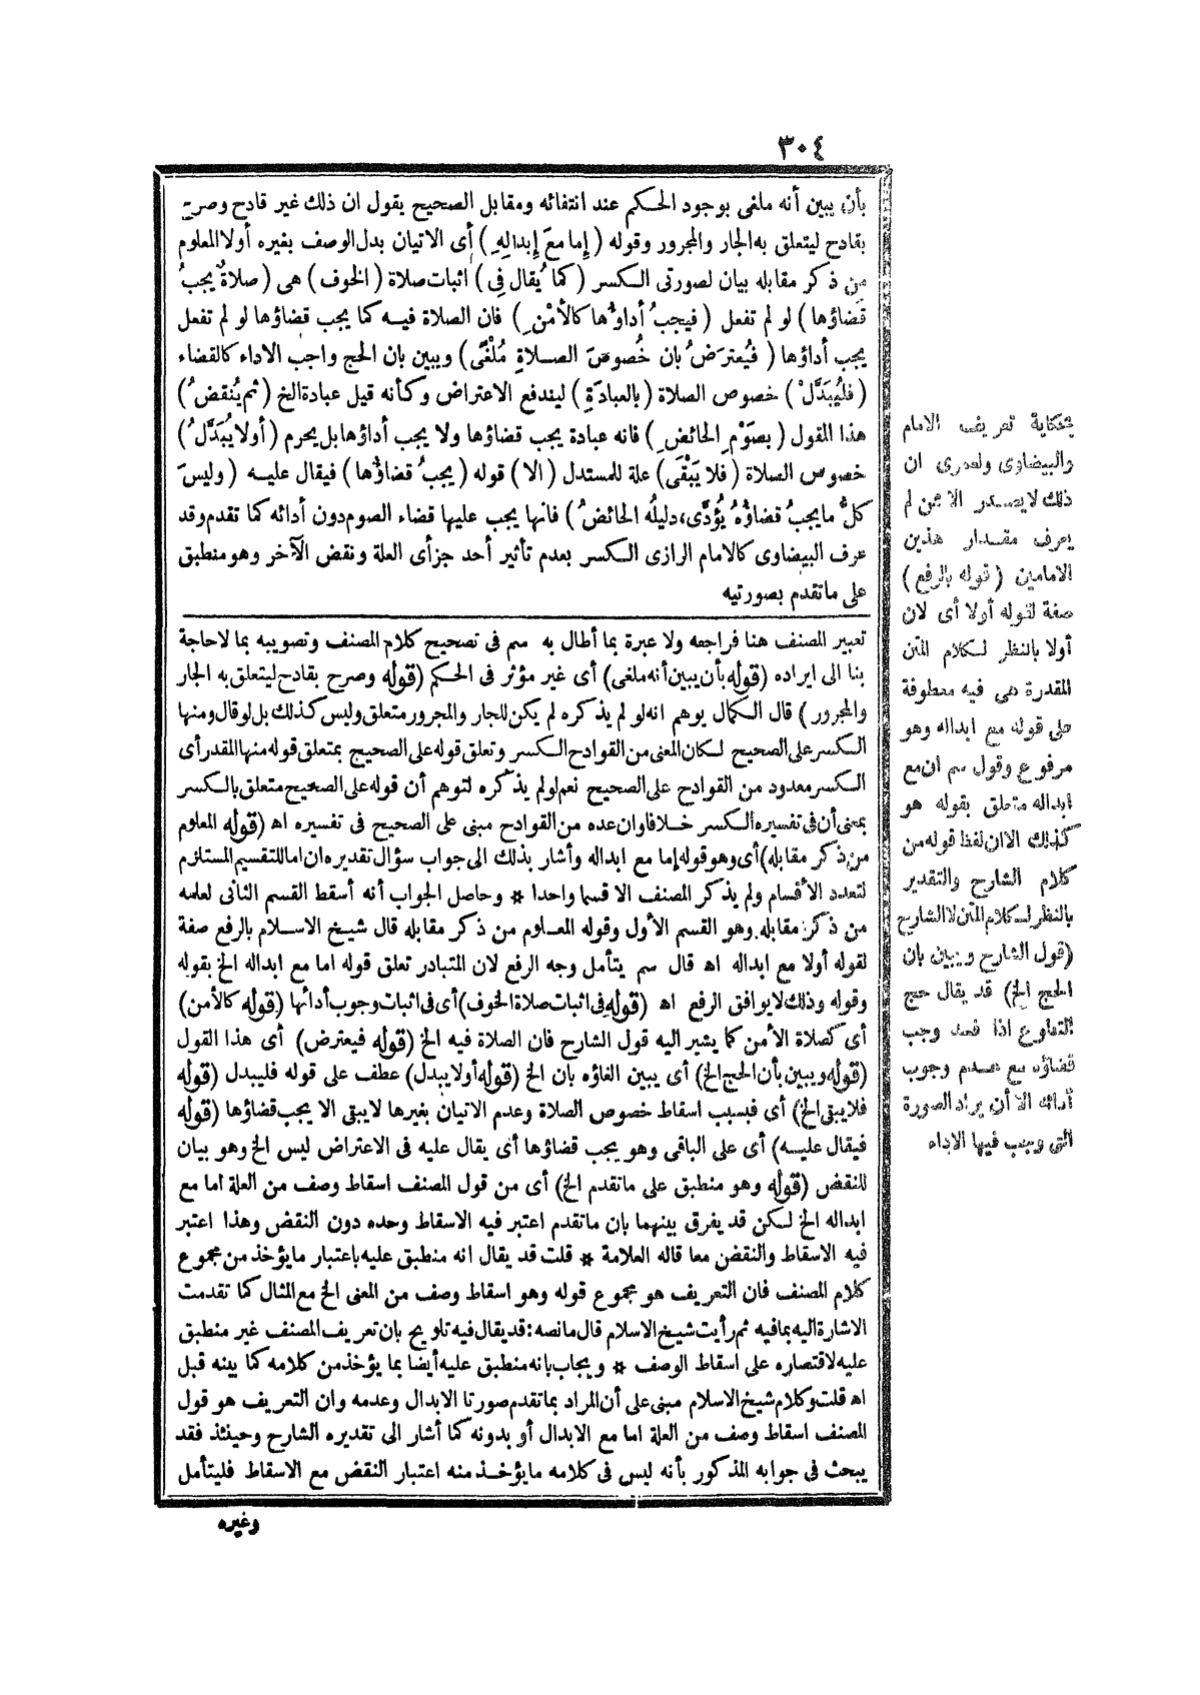 ٣٠٤
بأن يبين أنه ملغى بوجود الحكم عند انتفائه ومقابل الصحيح يقول ان ذلك غير قادح وصرح
بقادح ليتعلق به الجار والمجرور وقوله ( إما معَ إبدالِهِ ) أى الاتيان بدل الوصف بغيره أولا المعلوم
من ذكر مقابله بيان لصورتى الكسر ( كما يُقال فى ) اثبات صلاة ( الخوف ) هى ( صلاةٌ يجبُ
قضاؤها ) لو لم تفعل ( فيجبُ أداؤُها كالأمْنِ ) فان الصلاة فيه كما يجب قضاؤها لو لم تفعل
يجب أداؤها ( فيُعترَضُ بان خُصوصَ الصلاةِ مُلْغًى ) ويبين بان الحج واجب الاداء كالقضاء
( فليُبَدَّلْ ) خصوص الصلاة ( بالعبادَةِ ) ليندفع الاعتراض وكأنه قيل عبادة الخ ( ثم يُنقضُ )
هذا المقول ( بصَوْمِ الحائضِ ) فانه عبادة يجب قضاؤها ولا يجب أداؤها بل يحرم ( أولا يُبَدَّلُ )
خصوص الصلاة ( فلا يَبْقَى ) علة للمستدل ( الا ) قوله ( يجبُ قضاؤُها ) فيقال عليه ( وليسَ
كلُّ مايجبُ قضاؤُهُ يُؤدَّى، دليلُه الحائضُ ) فانها يجب عليها قضاء الصوم دون أدائه كما تقدم وقد
عرف البيضاوى كالامام الرازى الكسر بعدم تأثير أحد جزأى العلة ونقض الآخر وهو منطبق
على ماتقدم بصورتيه
تعبير المصنف هنا فراجعه ولا عبرة بما أطال به سم فى تصحيح كلام المصنف وتصويبه بما لاحاجة
بنا الى ايراده (قوله بأن يبين أنه ملغى) أى غير مؤثر فى الحكم (قوله وصرح بقادح ليتعلق به الجار
والمجرور) قال الكمال يوهم انه لو لم يذكره لم يكن للجار والمجرور متعلق وليس كذلك بل لو قال ومنها
الكسر على الصحيح لكان المعنى من القوادح الكسر وتعلق قوله على الصحيح بمتعلق قوله منها المقدر أى
الكسر معدود من القوادح على الصحيح نعم لو لم يذكره لتوهم أن قوله على الصحيح متعلق بالكسر
بمعنى أن فى تفسيره الكسر خلافا وان عده من القوادح مبنى على الصحيح فى تفسيره اه (قوله المعلوم
من ذكر مقابله) أى وهو قوله إما مع ابداله وأشار بذلك الى جواب سؤال تقديره ان اما للتقسيم المستلزم
لتعدد الأقسام ولم يذكر المصنف الا قسما واحدا * وحاصل الجواب أنه أسقط القسم الثانى لعلمه
من ذكر مقابله وهو القسم الأول وقوله المعلوم من ذكر مقابله قال شيخ الاسلام بالرفع صفة
لقوله أولا مع ابداله اه قال سم يتأمل وجه الرفع لان المتبادر تعلق قوله اما مع ابداله الخ بقوله
وقوله وذلك لا يوافق الرفع اه (قوله فى اثبات صلاة الخوف) أى فى اثبات وجوب أدائها (قوله كالأمن)
أى كصلاة الأمن كما يشير اليه قول الشارح فان الصلاة فيه الخ (قوله فيعترض) أى هذا القول
(قوله ويبين بأن الحج الخ) أى يبين الغاؤه بان الخ (قوله أولا يبدل) عطف على قوله فليبدل (قوله
فلا يبقى الخ) أى فبسبب اسقاط خصوص الصلاة وعدم الاتيان بغيرها لا يبقى الا يجب قضاؤها (قوله
فيقال عليه) أى على الباقى وهو يجب قضاؤها أى يقال عليه فى الاعتراض ليس الخ وهو بيان
للنقض (قوله وهو منطبق على ماتقدم الخ) أى من قول المصنف اسقاط وصف من العلة اما مع
ابداله الخ لكن قد يفرق بينهما بان ماتقدم اعتبر فيه الاسقاط وحده دون النقض وهذا اعتبر
فيه الاسقاط والنقض معا قاله العلامة * قلت قد يقال انه منطبق عليه باعتبار مايؤخذ من مجموع
كلام المصنف فان التعريف هو مجموع قوله وهو اسقاط وصف من المعنى الخ مع المثال كما تقدمت
الاشارة اليه بمافيه ثم رأيت شيخ الاسلام قال مانصه: قد يقال فيه تلويح بان تعريف المصنف غير منطبق
عليه لاقتصاره على اسقاط الوصف * ويجاب بانه منطبق عليه أيضا بما يؤخذ من كلامه كما بينه قبل
اه قلت وكلام شيخ الاسلام مبنى على أن المراد بما تقدم صورتا الابدال وعدمه وان التعريف هو قول
المصنف اسقاط وصف من العلة اما مع الابدال أو بدونه كما أشار الى تقديره الشارح وحينئذ فقد
يبحث فى جوابه المذكور بأنه ليس فى كلامه مايؤخذ منه اعتبار النقض مع الاسقاط فليتأمل
وغيره
بحكاية تعريف الامام
والبيضاوى ولعمرى ان
ذلك لا يصدر الا عن لم
يعرف مقدار هذين
الامامين (قوله بالرفع)
صفة لقوله أولا أى لان
أولا بالنظر لكلام المتن
المقدرة هى فيه معطوفة
على قوله مع ابداله وهو
مرفوع وقول سم ان مع
ابداله متعلق بقوله هو
كذلك الا ان لفظ قوله من
كلام الشارح والتقدير
بالنظر لكلام المتن لا الشارح
(قول الشارح ويبين بان
الحج الخ) قد يقال حج
التطوع اذا فسد وجب
قضاؤه مع عدم وجوب
أدائه الا أن يراد الصورة
التى وجب فيها الاداء